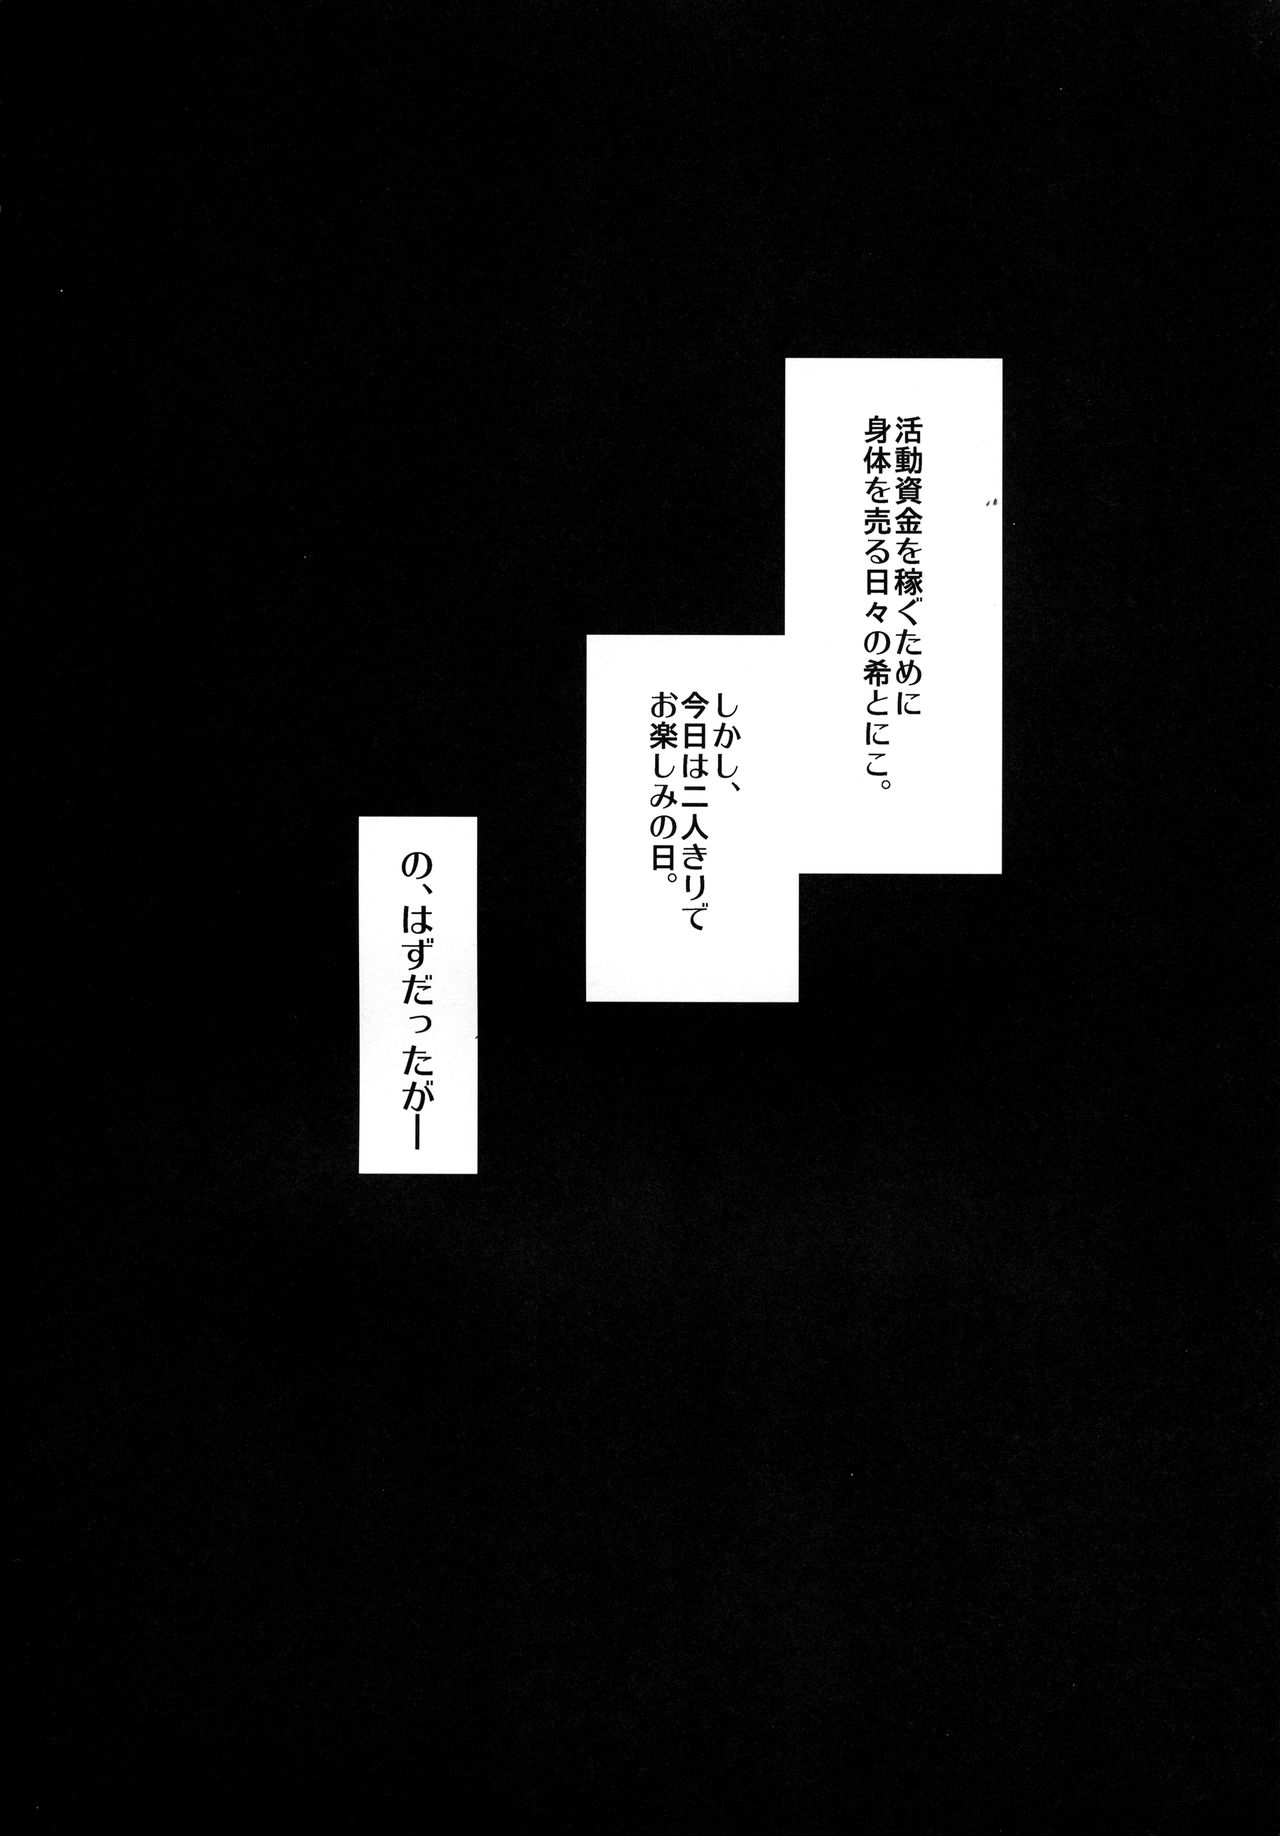 活動資金を稼ぐために
身体を売る日々の希とにこ。
しかし、
今日は二人きりで
お楽しみの日。
の、はずだったがー